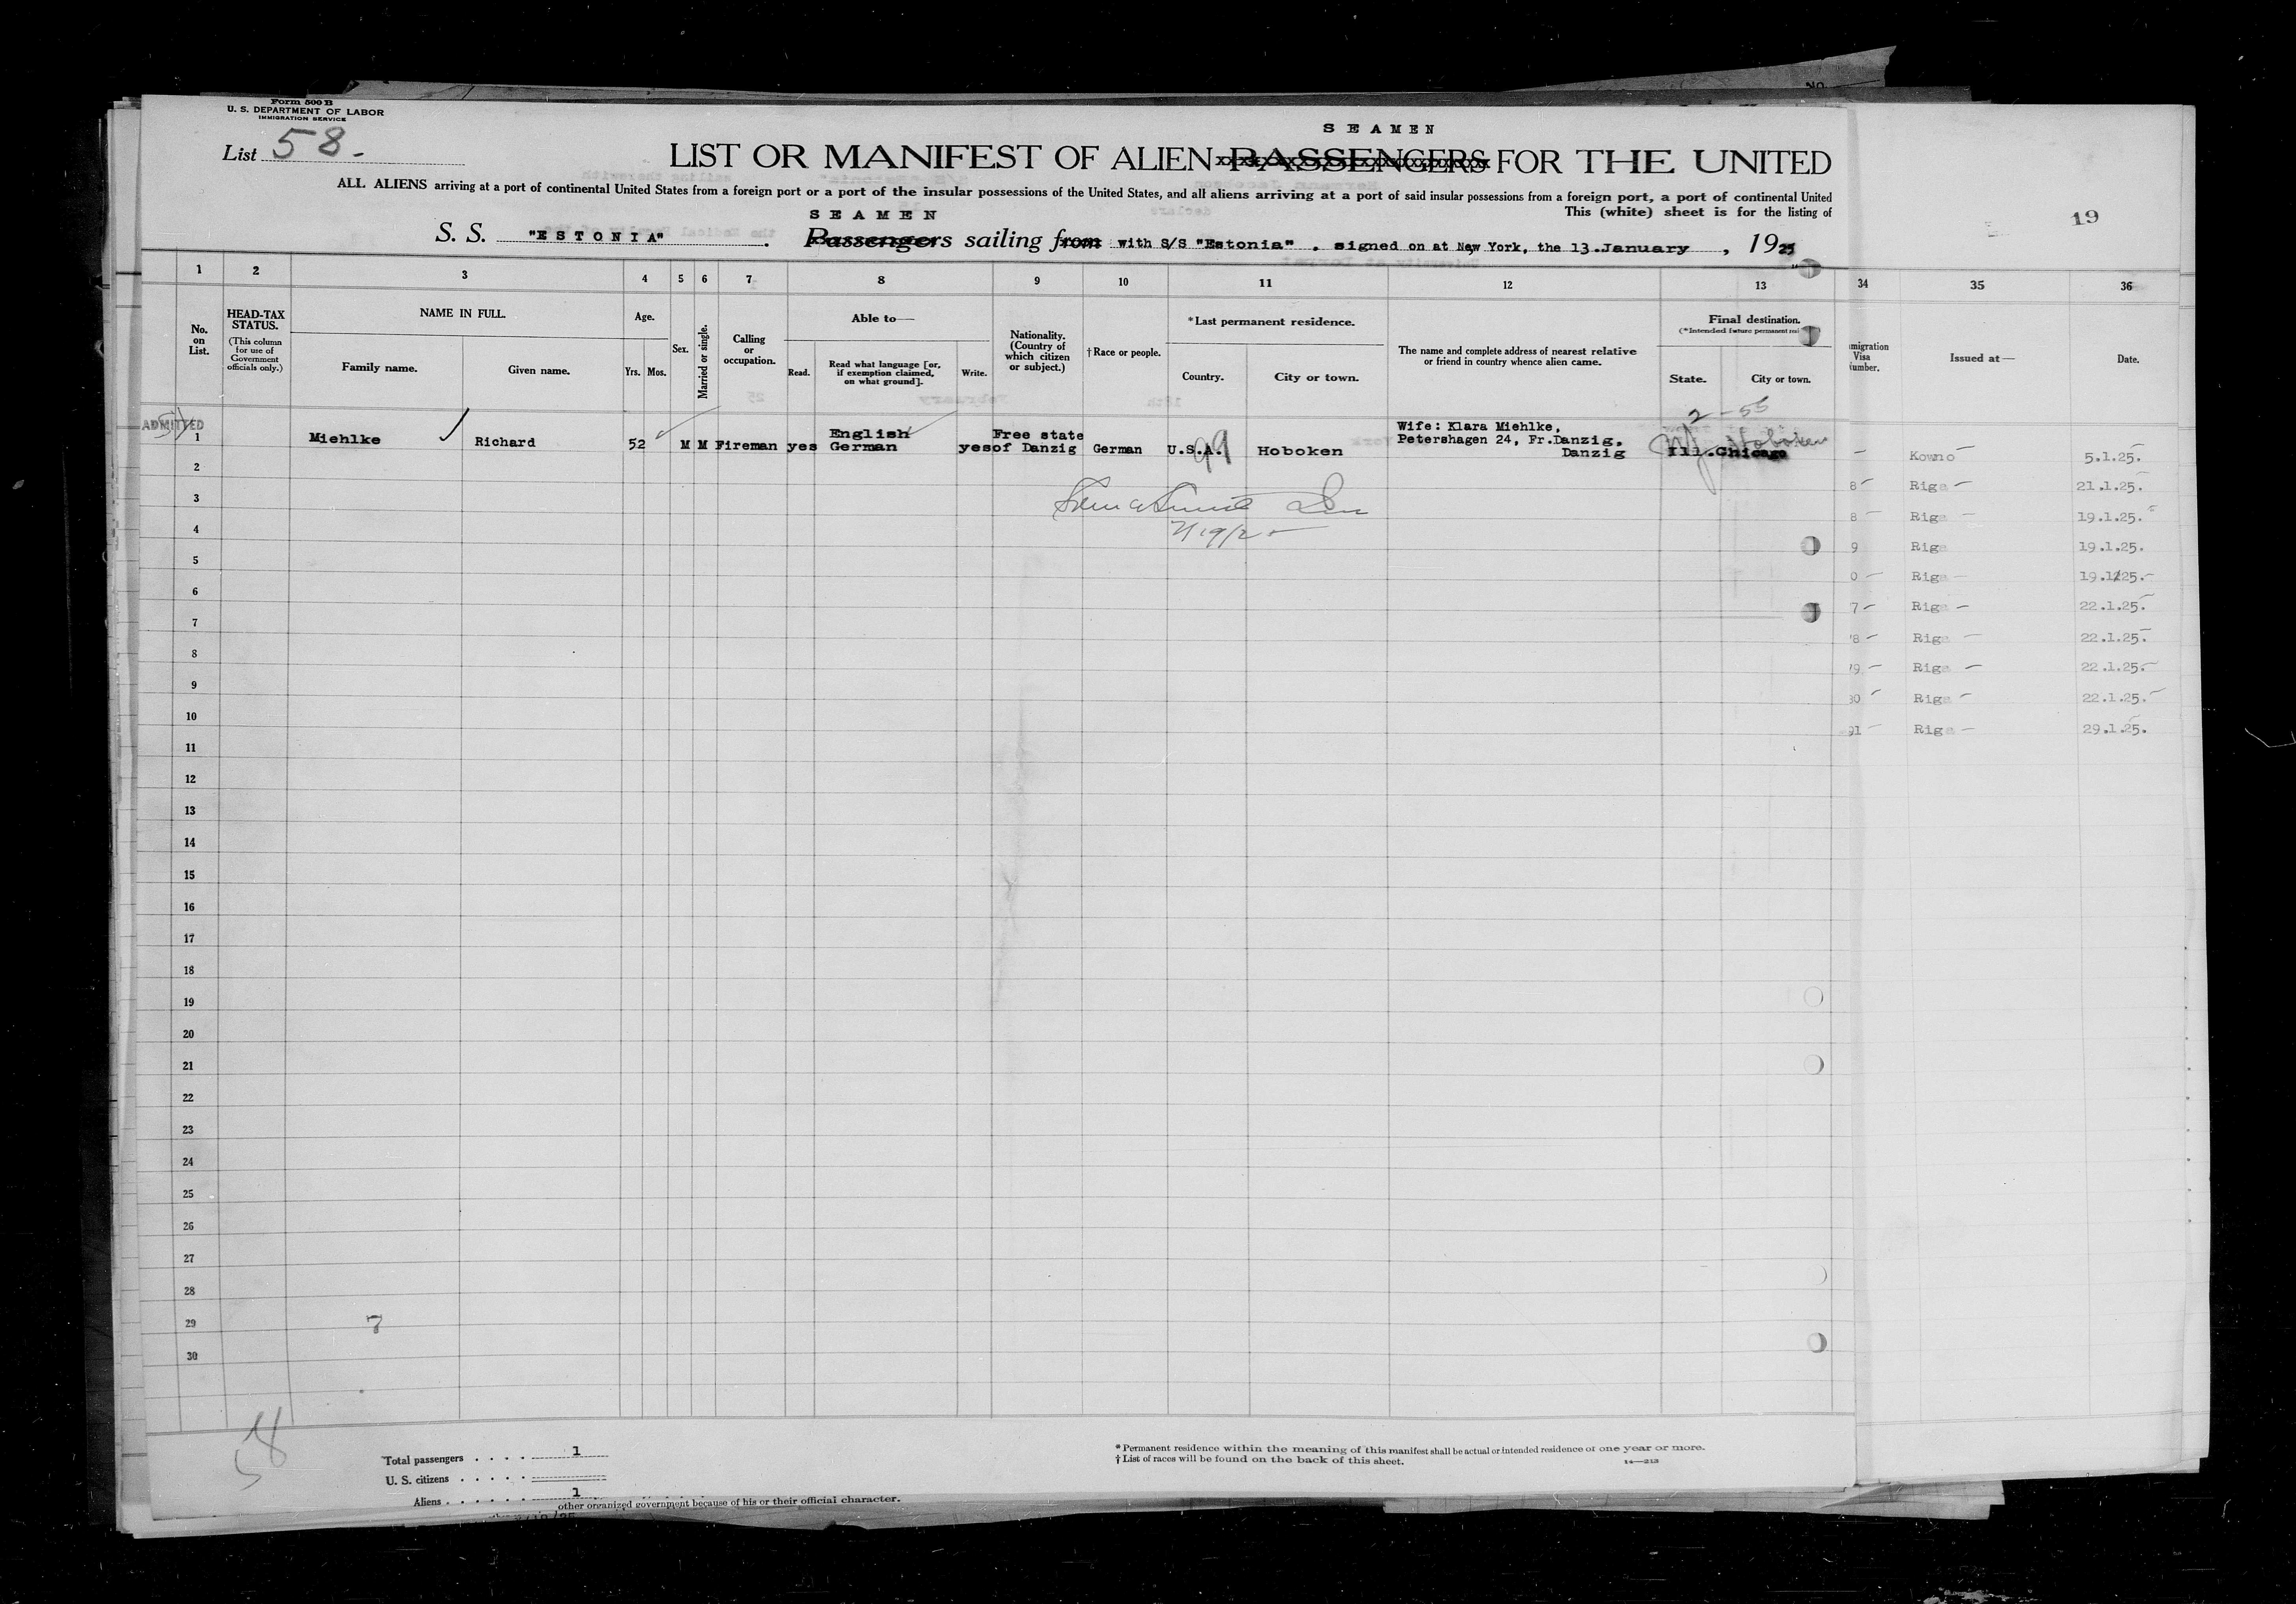 Form 500 B
U. S. DEPARTMENT OF LABOR
IMMIGRATION SERVICE
List 58.
SEAMEN
LIST OR MANIFEST OF ALIEN PASSENGERS FOR THE UNITED
ALL ALIENS arriving at a port of continental United States from a foreign port or a port of the insular possessions of the United States, and all aliens arriving at a port of said insular possessions from a foreign port, a port of continental United
This (white) sheet is for the listing of
19
SEAMEN
S. S. "ESTONIA". Passengers sailing from with S/S "Estonia" , signed on at New York, the 13.January , 1925
1 2 3 4 5 6 7 8 9 10 11 12 13 34 35 36
No. on List.
HEAD-TAX STATUS.
(This column for use of Government officials only.)
NAME IN FULL.
Family name. Given name.
Age.
Yrs. Mos.
Sex.
Married or single.
Calling or occupation.
Able to—
Read. Read what language [or, if exemption claimed, on what ground]. Write.
Nationality. (Country of which citizen or subject.)
†Race or people.
*Last permanent residence.
Country. City or town.
The name and complete address of nearest relative or friend in country whence alien came.
Final destination.
State. City or town.
Issued at—
Date.
2-55
ADMITTED
1 Miehlke Richard 52 M M Fireman yes English German yes Free state of Danzig German U.S.A. 99 Hoboken Wife: Klara Miehlke, Petershagen 24, Fr.Danzig, Danzig Ill.Chicago NJ Hoboken
— Kowno — 5.1.25.
2
8 — Riga — 21.1.25.
3
8 — Riga — 19.1.25.
4
9 Riga 19.1.25.
5
0 — Riga — 19.1.25.
6
7 — Riga — 22.1.25.
7
8 — Riga — 22.1.25.
8
9 — Riga — 22.1.25.
9
30 — Riga — 22.1.25.
10
91 — Riga — 29.1.25.
11
12
13
14
15
16
17
18
19
20
21
22
23
24
25
26
27
28
29
7
30
58
Total passengers . . . . 1
U. S. citizens . . . . .
Aliens . . . . . . 1
other organized government because of his or their official character.
* Permanent residence within the meaning of this manifest shall be actual or intended residence of one year or more.
† List of races will be found on the back of this sheet.
14—213